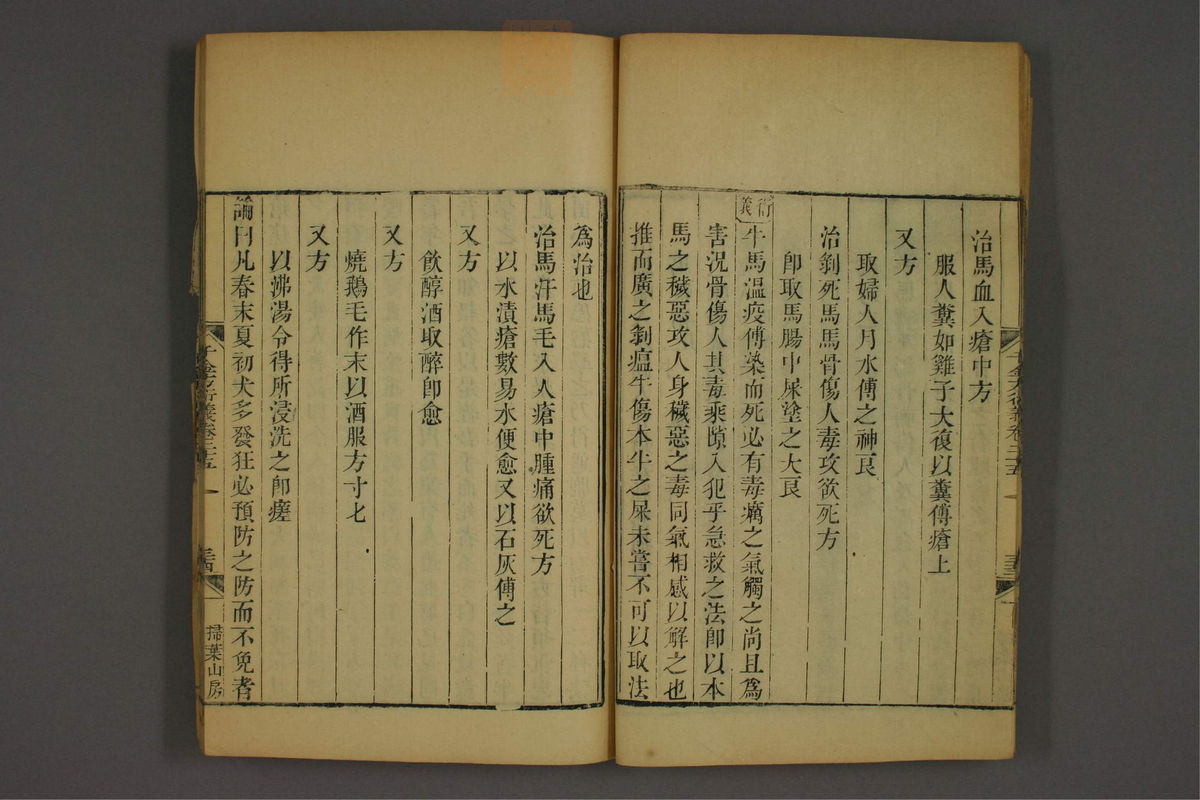 治馬血入瘡中方
服人糞如雞子大復以糞傅瘡上
又方
取婦人月水傅之神良
治剝死馬馬骨傷人毒攻欲死方
卽取馬腸中屎塗之大良
衍義
牛馬溫疫傅染而死必有毒癘之氣觸之尚且爲
害況骨傷人其毒乘隙入犯乎急救之法卽以本
馬之穢惡攻人身穢惡之毒同氣相感以解之也
推而廣之剝瘟牛傷本牛之屎未嘗不可以取法
千金方衍義卷二十五
三十三
爲治也
治馬汗馬毛入人瘡中腫痛欲死方
以水漬瘡數易水便愈又以石灰傅之
又方
飲醇酒取醉卽愈
又方
燒鵝毛作末以酒服方寸匕
又方
以沸湯令得所浸洗之卽瘥
論曰凡春末夏初犬多發狂必預防之防而不免者
千金方衍義卷二十五
三十四
掃葉山房